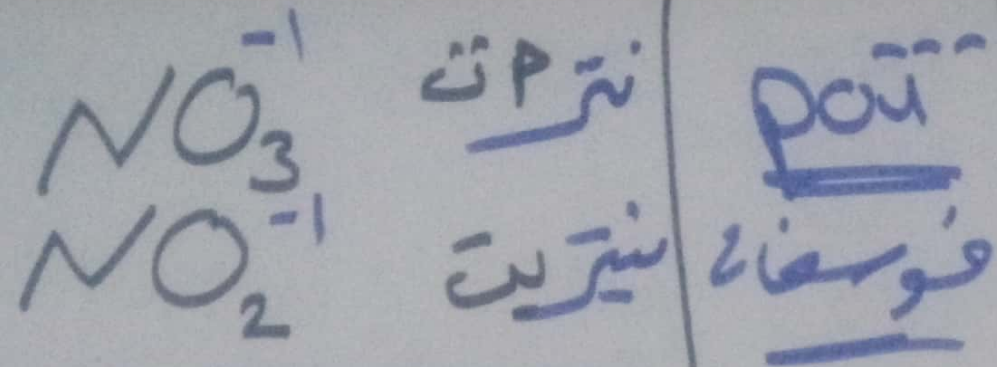 NO₃⁻¹ نترات
NO₂⁻¹ نيتريت
PO₄⁻⁻⁻
فوسفات